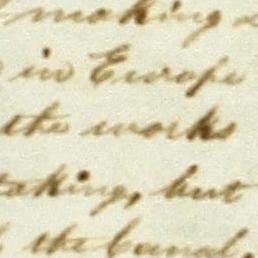 making
in Europe
the works
taking, but
the Canal,